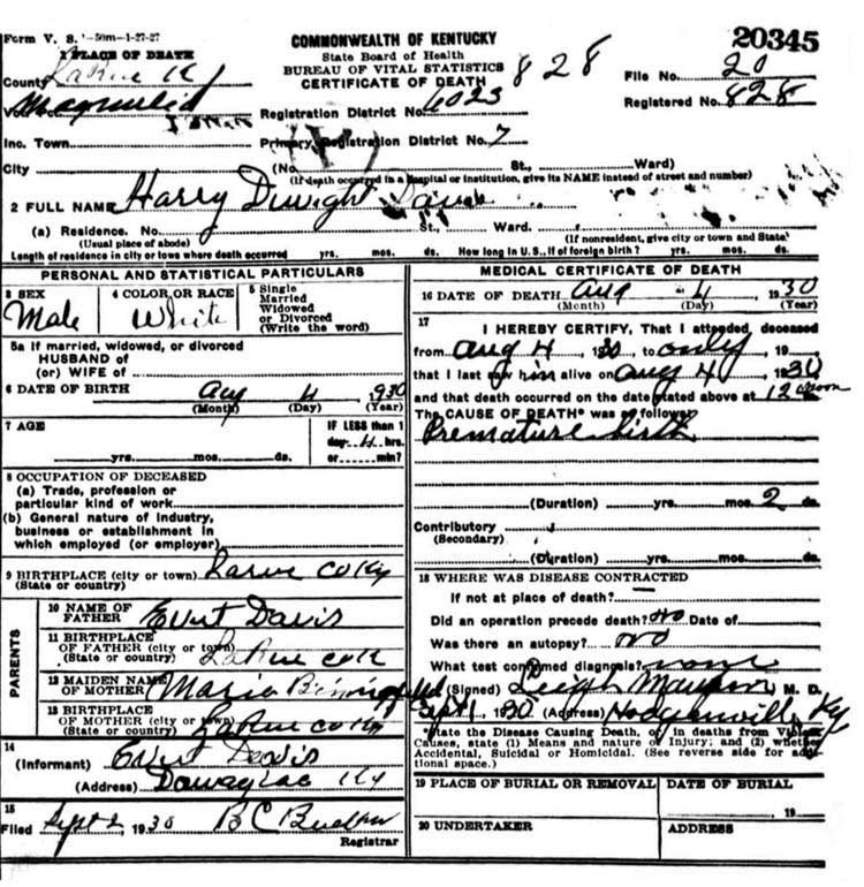 Form V. S. 1-50m-1-27-27
COMMONWEALTH OF KENTUCKY
State Board of Health
BUREAU OF VITAL STATISTICS
CERTIFICATE OF DEATH
828
20345
File No. 20
Registered No. 828
1 PLACE OF DEATH
County LaRue Ky
Magnolia
Registration District No. 6023
Inc. Town
Primary Registration District No. 7
City
(No. St., Ward)
(If death occurred in a hospital or institution, give its NAME instead of street and number)
2 FULL NAME Harry Dwight Davis
(a) Residence. No. St., Ward.
(Usual place of abode) (If nonresident, give city or town and State)
Length of residence in city or town where death occurred yrs. mos. ds. How long in U. S., if of foreign birth? yrs. mos. ds.
PERSONAL AND STATISTICAL PARTICULARS
3 SEX
Male
4 COLOR OR RACE
White
5 Single
Married
Widowed
or Divorced
(Write the word)
5a If married, widowed, or divorced
HUSBAND of
(or) WIFE of
6 DATE OF BIRTH Aug 4, 1930
(Month) (Day) (Year)
7 AGE
yrs. mos. ds.
IF LESS than 1
day 4 hrs.
or min?
8 OCCUPATION OF DECEASED
(a) Trade, profession or
particular kind of work
(b) General nature of industry,
business or establishment in
which employed (or employer)
9 BIRTHPLACE (city or town) Larue Co Ky
(State or country)
PARENTS
10 NAME OF
FATHER Evert Davis
11 BIRTHPLACE
OF FATHER (city or town)
(State or country) LaRue Co K
12 MAIDEN NAME
OF MOTHER Maria
13 BIRTHPLACE
OF MOTHER (city or town)
(State or country) LaRue Co Ky
14
(Informant) Evert Davis
(Address) Dowagiac Ky
15
Filed Sept 2, 1930 B C
Registrar
MEDICAL CERTIFICATE OF DEATH
16 DATE OF DEATH Aug 4 1930
(Month) (Day) (Year)
17
I HEREBY CERTIFY, That I attended, deceased
from Aug 4, 1930, to only, 19
that I last saw him alive on Aug 4, 1930
and that death occurred on the date stated above at 12 noon
The CAUSE OF DEATH* was as follows:
Premature birth
(Duration) yrs. mos. 2 ds.
Contributory
(Secondary)
(Duration) yrs. mos. ds.
18 WHERE WAS DISEASE CONTRACTED
If not at place of death? —
Did an operation precede death? No Date of
Was there an autopsy? No
What test confirmed diagnosis? none
(Signed) Leigh M. D.
Sept 1, 1930 (Address) Hodgenville, Ky
*State the Disease Causing Death, or in deaths from Violent
Causes, state (1) Means and nature of Injury; and (2) whether
Accidental, Suicidal or Homicidal. (See reverse side for additional space.)
19 PLACE OF BURIAL OR REMOVAL
DATE OF BURIAL
19
20 UNDERTAKER
ADDRESS